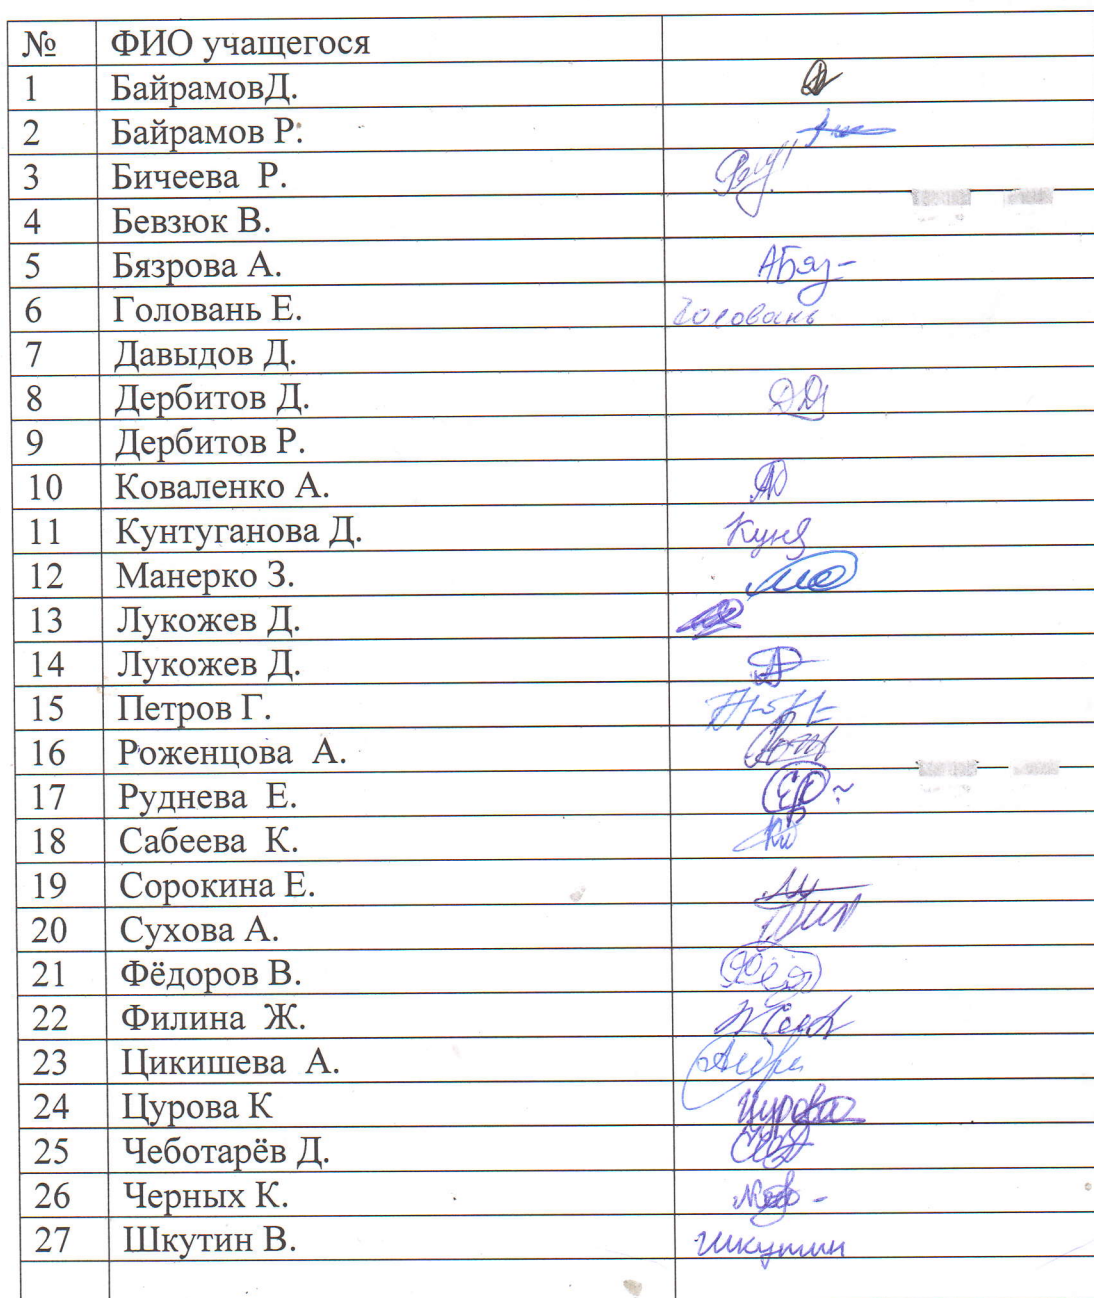 № ФИО учащегося
1 БайрамовД.
2 Байрамов Р.
3 Бичеева Р.
4 Бевзюк В.
5 Бязрова А. АБяз-
6 Головань Е. Головань
7 Давыдов Д.
8 Дербитов Д. ДД
9 Дербитов Р.
10 Коваленко А.
11 Кунтуганова Д.
12 Манерко З.
13 Лукожев Д.
14 Лукожев Д.
15 Петров Г.
16 Роженцова А.
17 Руднева Е.
18 Сабеева К.
19 Сорокина Е.
20 Сухова А.
21 Фёдоров В.
22 Филина Ж.
23 Цикишева А.
24 Цурова К Цурова
25 Чеботарёв Д.
26 Черных К.
27 Шкутин В. Шкутин